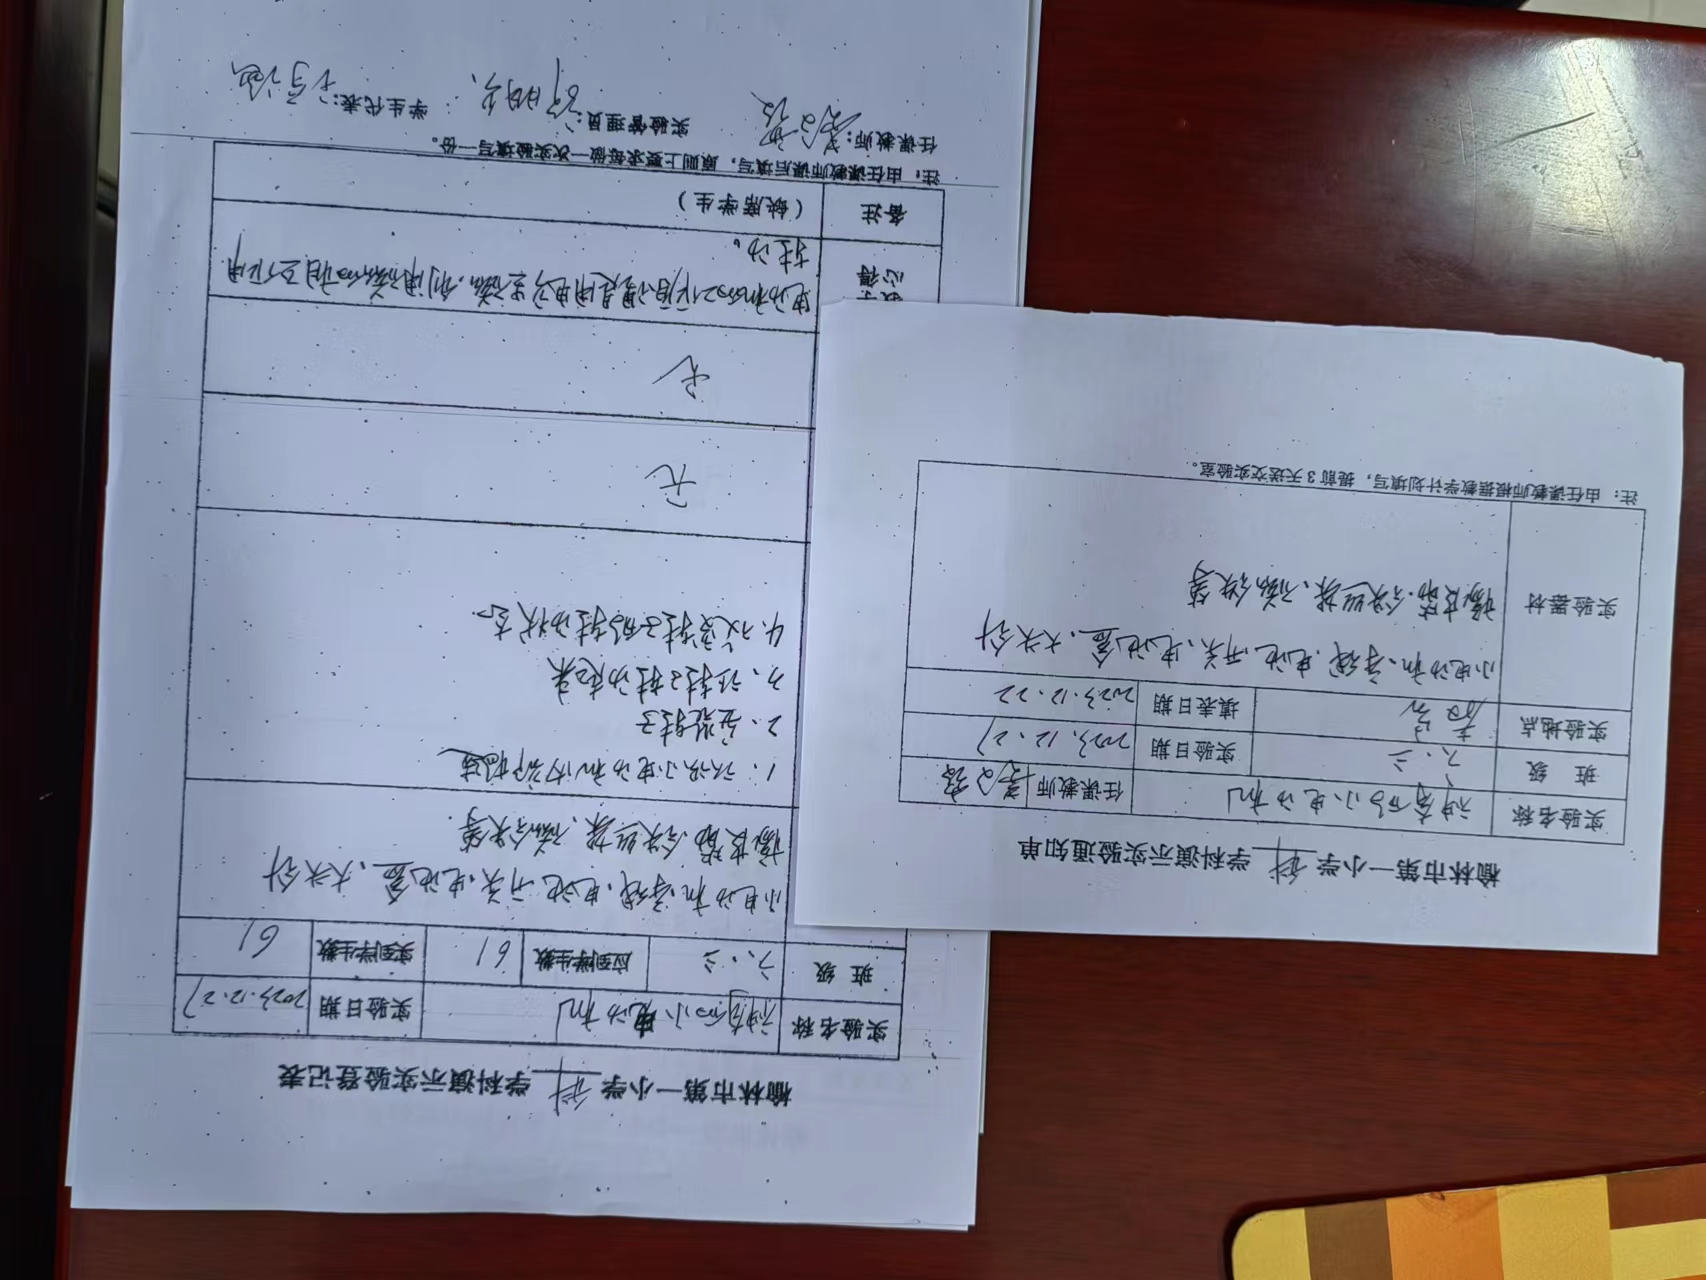 榆林市第一小学 科 学科演示实验登记表
实验名称 神奇的小电动机 实验日期 2023.12.27
班 级 六.三 应到学生数 61 实到学生数 61
小电动机、导线、电池、开关、电池盒、大头针
橡皮筋、铁丝架、磁铁等.
1、认识小电动机内部构造
2、安装转子
3、让转子转动起来
4.改变转子的转动状态.
无
无
教学
心得
电动机的工作原理是用电产生磁,利用磁的相互作用
转动。
备注 (缺席学生)
注:由任课教师课后填写,原则上要求每做一次实验填写一份。
任课教师: 实验管理员: 学生代表:
榆林市第一小学 科 学科演示实验通知单
实验名称 神奇的小电动机 任课教师
班 级 六.三 实验日期 2023.12.27
实验地点 填表日期 2023.12.22
实验器材
小电动机、导线、电池、开关、电池盒、大头针
橡皮筋、铁丝架、磁铁等
注: 由任课教师根据教学计划填写,提前3天送交实验室。